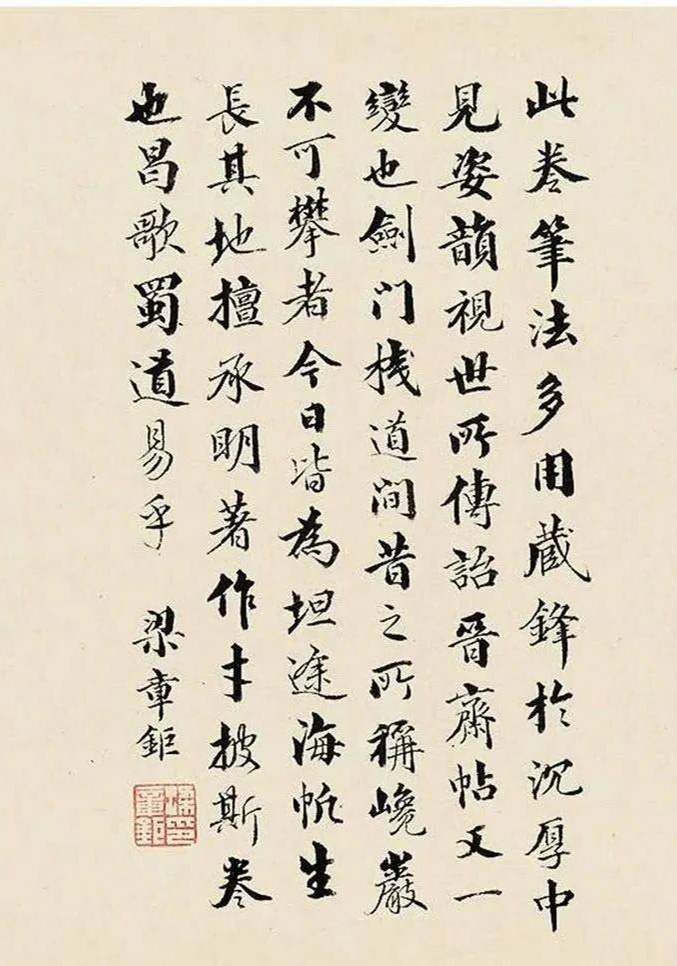 此卷筆法多用蔵鋒於沉厚中
見姿韻視世所傳詒晉齋帖又一
變也劍门栈道间昔之所稱巉巖
不可攀者今日皆為坦途海帆生
長其地擅承明著作才披斯卷
也昌歌蜀道易乎
梁章鉅